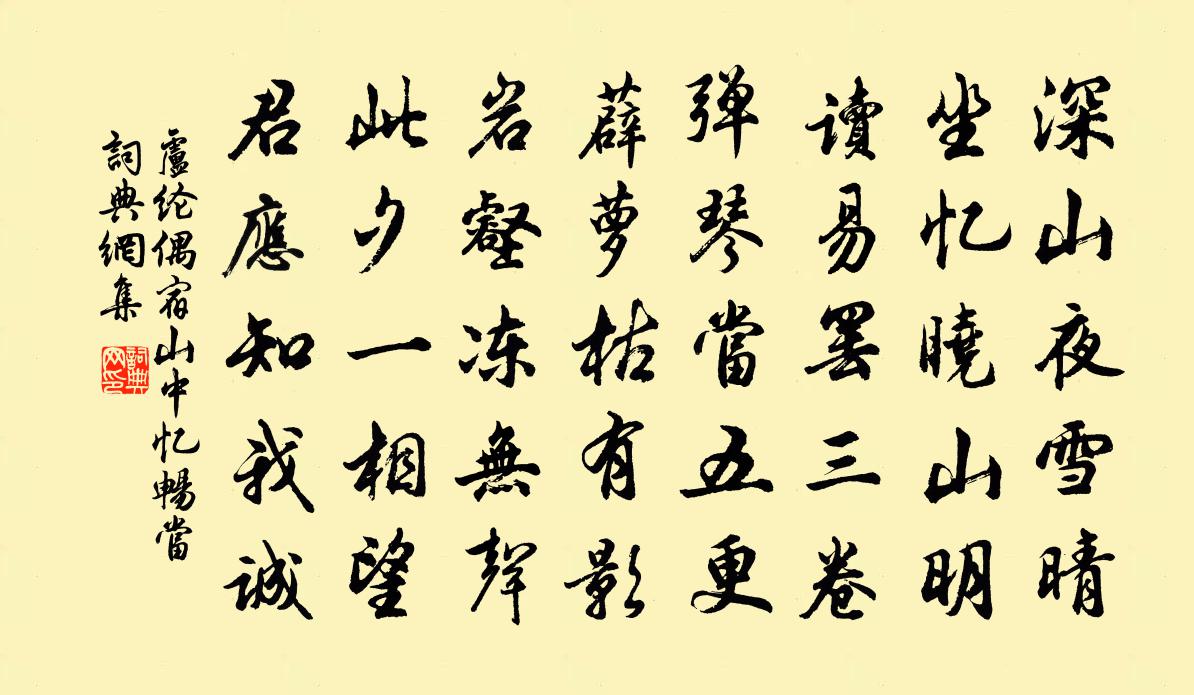 深山夜雪晴
坐忆曉山明
讀易罢三卷
弹琴當五更
薜萝枯有影
岩壑冻無聲
此夕一相望
君應知我誠
盧纶偶宿山中忆暢當
詞典網集
詞典网印